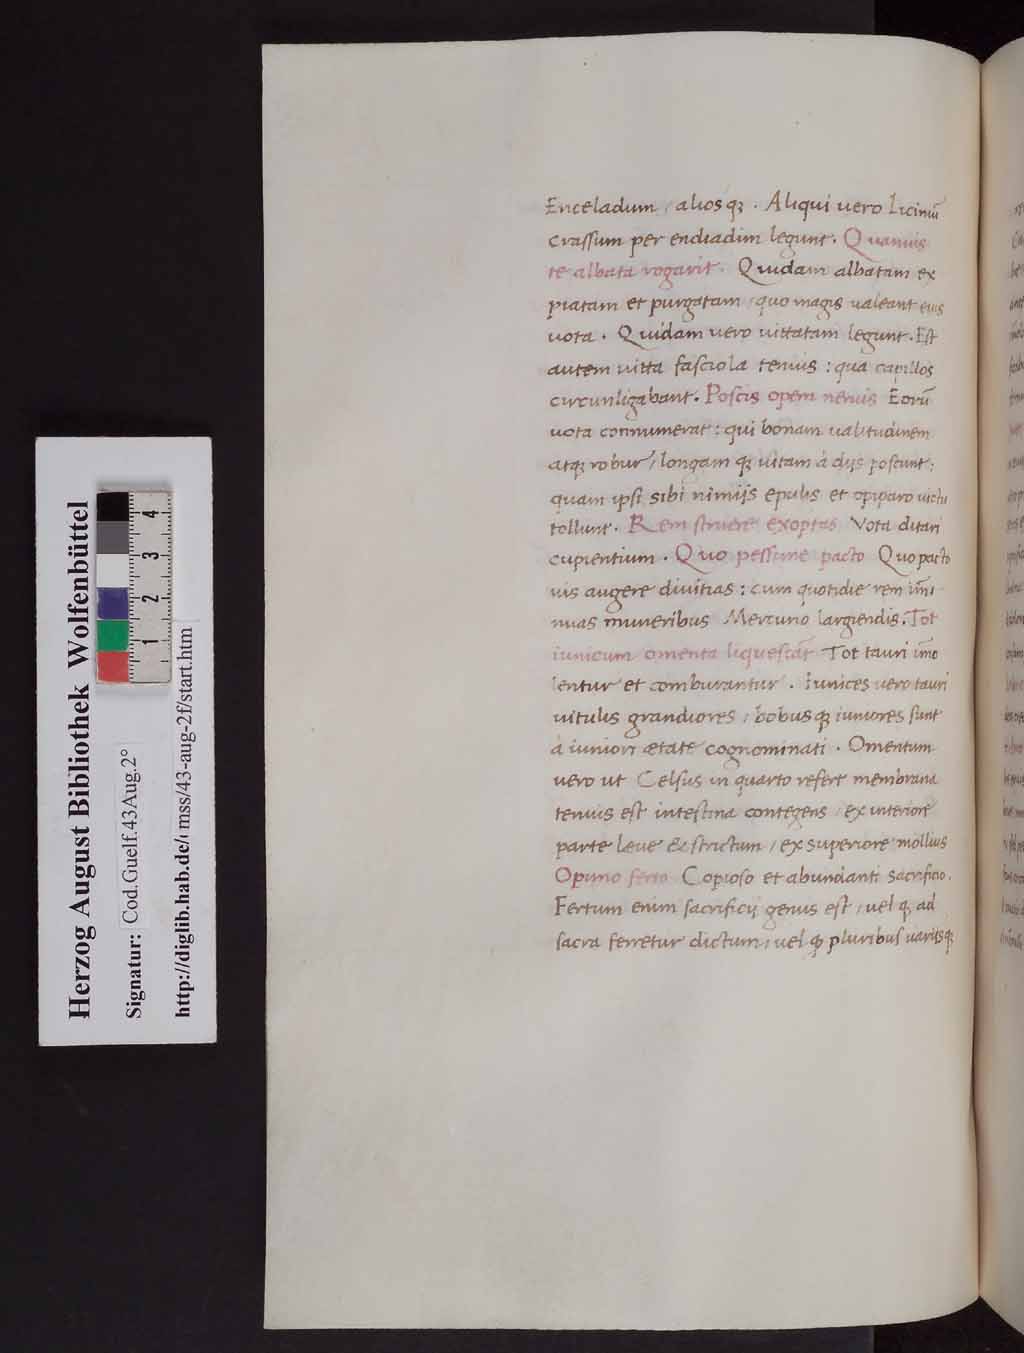 Enceladum / aliosqꝫ . Aliqui uero Liciniū
crassum per endiadim legunt. Quamuis
te albata rogarit. Quidam albatam ex
piatam et purgatam / quo magis ualeant eius
uota . Quidam uero uittatam legunt. Est
autem uitta fasciola tenuis : qua capillos
circunligabant. Poscis opem neruis Eorū
uota connumerat : qui bonam ualitudinem
atqꝫ robur / longam qꝫ uitam à dijs poscunt :
quam ipsi sibi nimijs epulis et opiparo uictu
tollunt. Rem struere exoptas Vota ditari
cupientium . Quo pessime pacto Quo pacto
uis augere diuitias : cum quotidie rem im̄i
nuas muneribus Mercurio largiendis. Tot
iunicum omenta liquescāt Tot tauri im̄o
lentur et comburantur . Iunices uero tauri
uitulis grandiores / bobusqꝫ iuniores sunt
à iuniori ætate cognominati . Omentum
uero ut Celsus in quarto refert membrana
tenuis est intestina contegens / ex interiore
parte leue & strictum / ex superiore mollius
Opimo ferto Copioso et abundanti sacrificio.
Fertum enim sacrificij genus est / uel qꝫ ad
sacra ferretur dictum / uel qꝫ pluribus uarijsqꝫ
Herzog August Bibliothek Wolfenbüttel
Signatur: Cod.Guelf.43Aug.2°
http://diglib.hab.de/ mss/43-aug-2f/start.htm
1 2 3 4